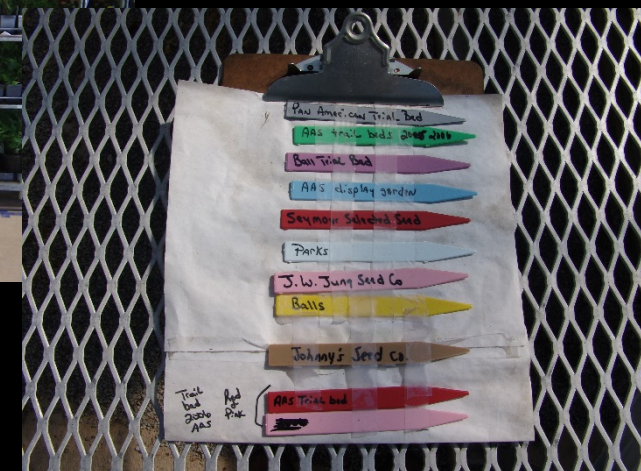 Pan American Trial Bed
AAS trail beds 2006
Ball Trial Bed
AAS display garden
Seymour Selected Seed
Parks
J.W. Jung Seed Co
Balls
Johnny's Seed Co.
AAS Trial bed
Trail
bed
2006
AAS
Red
+
Pink